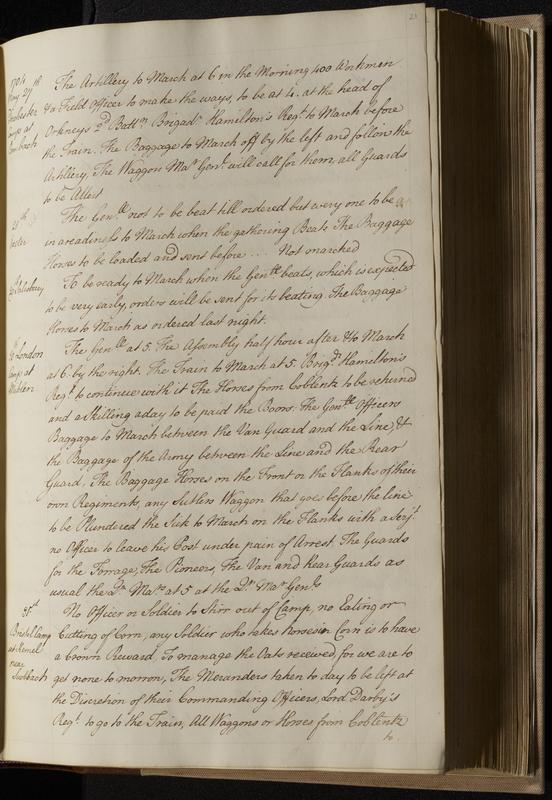 21
1704
May 27th
Dorchester
Camp at
The Artillery to March at 6 in the Morning 400 Workmen
& a Field Officer to make the ways, to be at 4. at the head of
Orkneys 2d Battn. Brigadr. Hamelton's Regt. to March before
the Train. The Baggage to March off by the left and follow the
Artillery, The Waggon Mar. Genl. will call for them, all Guards
to be Allert
29th
The Genll. not to be beat till ordered but every one to be
in areadiness to March when the gathering Beats The Baggage
Horses to be loaded and sent before .... Not marched
Salisbury
To be ready to March when the Genll. beats, which is expected
to be very early, orders will be sent for its beating. The Baggage
Horses to March as ordered last night.
30 London
Camp at
The Genll. at 5. The Assembly half hour after & to March
at 6. by the right. The Train to March at 5. Brigdr. Hamilton's
Regt. to continue with it The Horses from Coblentz to be returnd
and a Skilling a day to be paid the Boors. The Genll. Officers
Baggage to March between the Van Guard and the Line, &
the Baggage of the Army between the Line and the Rear
Guard, The Baggage Horses on the Front or the Flanks of their
own Regiments, any Sutlers Waggon that goes before the line
to be Plundered the Sick to March on the Flanks with a Serjt.
no Officer to leave his Post under pain of Arrest, The Guards
for the Forrage, The Pioneers, the Van and Rear Guards as
usual the Qr. Mars. at 5 at the Qr. Mar. Genls.
31st
Bristol Camp
at Hemel
near
No Officer or Soldier to Stirr out of Camp, no Eating or
Cutting of Corn, any Soldier who takes Horses in Corn is to have
a Crown Reward, To manage the Oats received, for we are to
get none to morrow, The Meranders taken to day to be left at
the Discretion of their Commanding Officers, Lord Darby's
Regt. to go to the Train, All Waggons or Horses from Coblentz
to